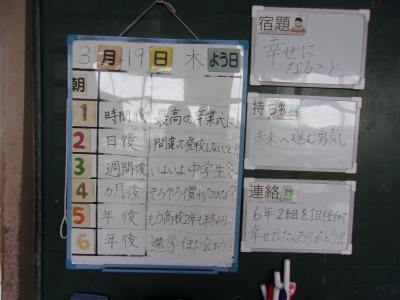 3月19日 木 よう日
朝
1 時間後 最高の卒業式に!
2 日後 間違って登校しないでよ!!
3 週間後 いよいよ中学生
4 カ月後 そろそろ慣れたかな?
5 年後 もう高校2年も終わりか
6 年後 選挙でまた会おう!!
宿題
幸せに
なること
持ち物
未来へ進む勇気
連絡
6年2組を担任できて
幸せでした。ありがとう!!